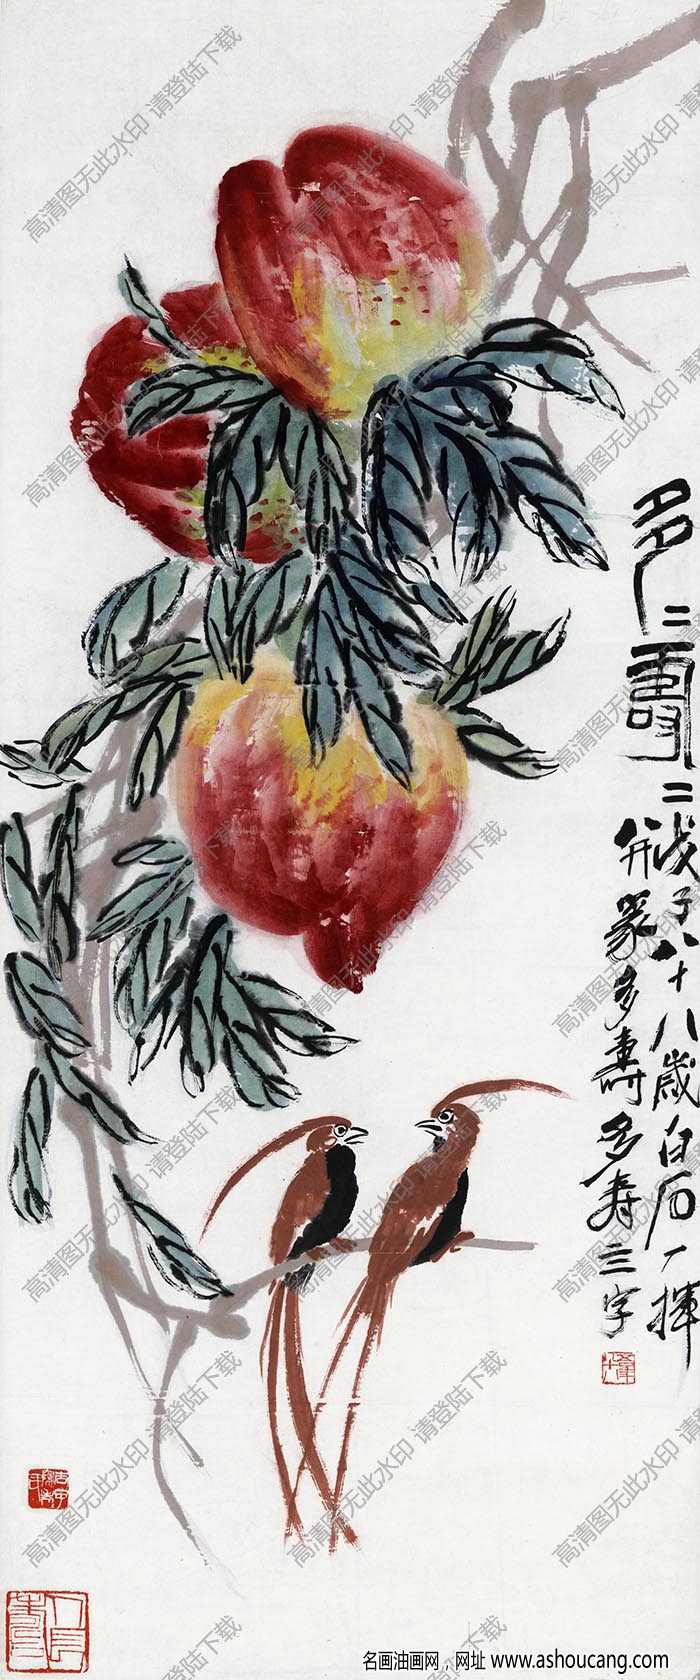 多二壽二
戊子八十八歲白石一揮
并篆多壽多寿三字
人長壽
高清图无此水印 请登陆下载
名画油画网，网址 www.ashoucang.com